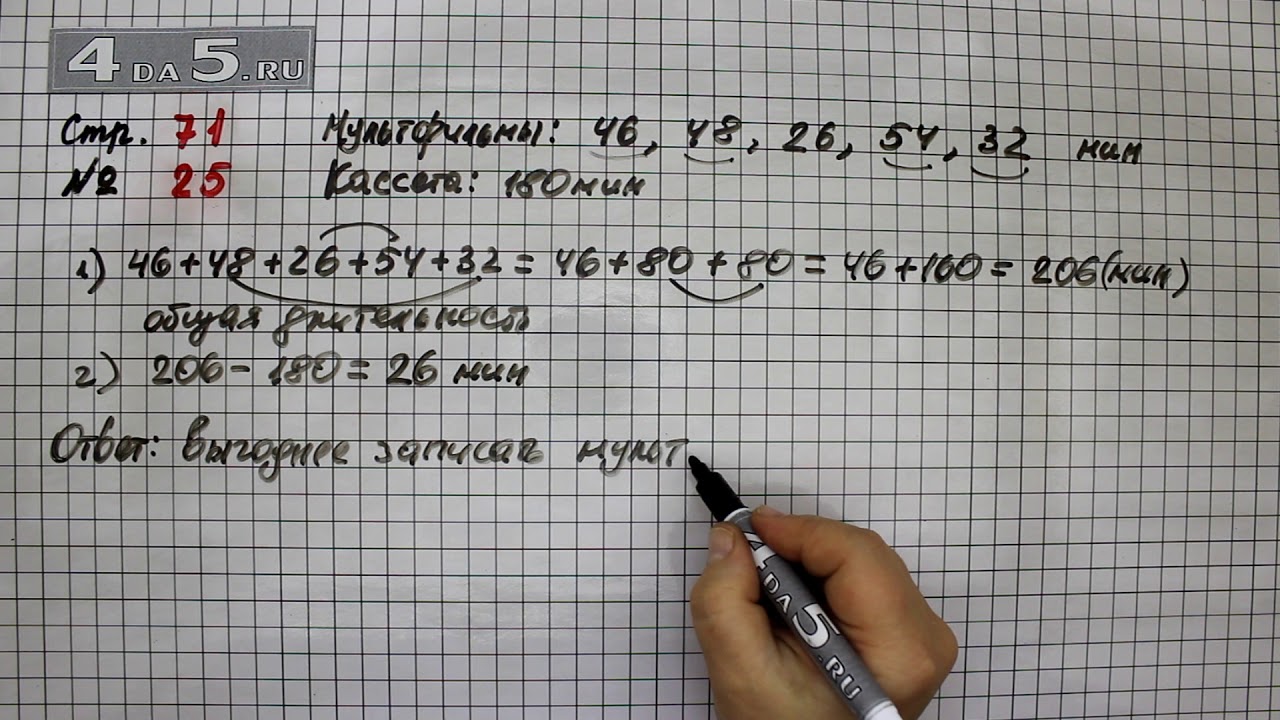 4DA5.RU
Стр. 71 Мультфильмы: 46, 48, 26, 54, 32 мин
№ 25 Кассета: 180 мин
1) 46+48+26+54+32=46+80+80=46+160=206(мин)
общая длительность
2) 206-180=26 мин
Ответ: выгоднее записать мульт
4DA5.RU